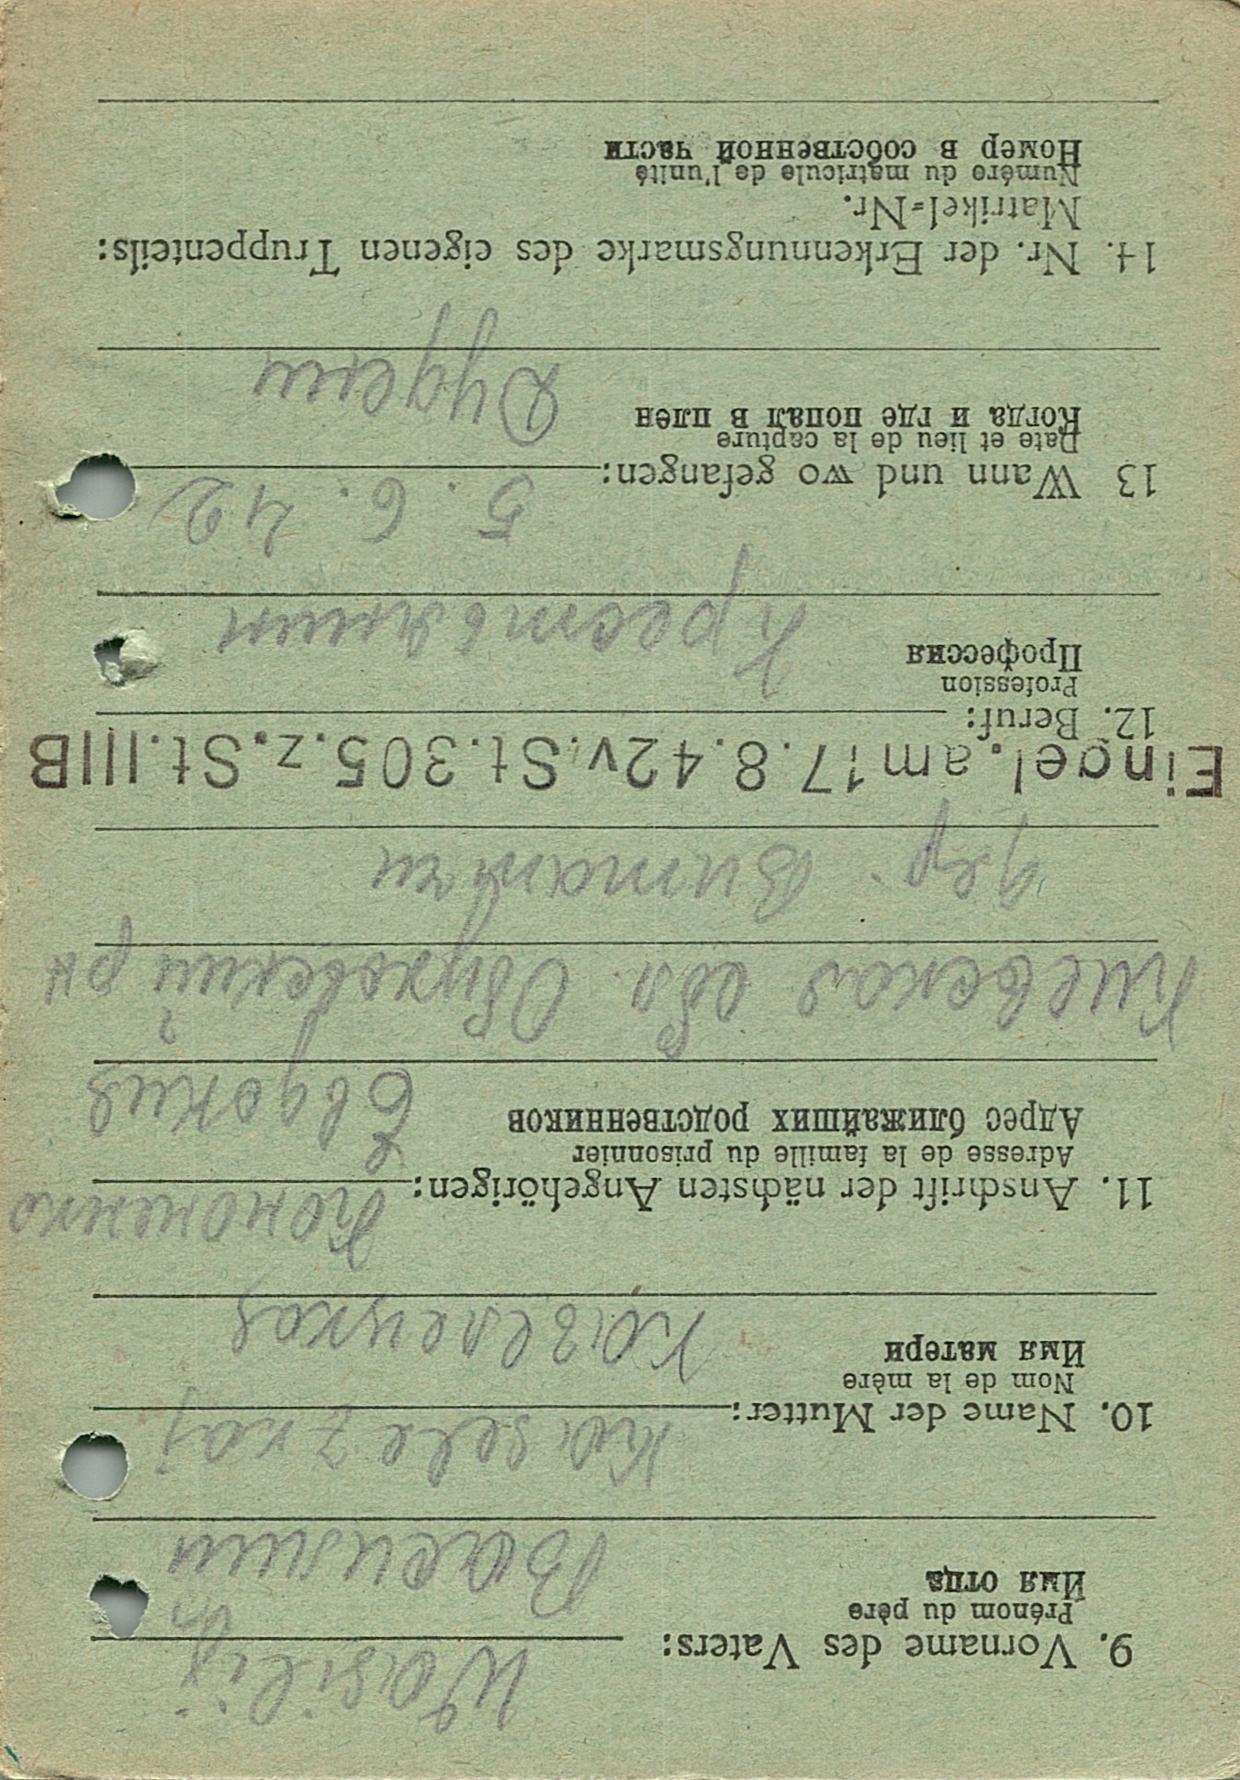 Wasilij
9. Vorname des Vaters:
Prénom du père
Имя отца
Василий
Kaselezkaj
10. Name der Mutter:
Nom de la mère
Имя матери
Козелецкая
Кононенко
11. Anschrift der nächsten Angehörigen:
Adresse de la famille du prisonnier
Адрес ближайших родственников
Евдокия
Киевская обл. Обуховский рн
дер. Витачи
Eingel. am 17.8.42 v. St. 305. z. St. IIIB
12. Beruf:
Profession
Профессия
Крестьянин
5. 6. 42
13 Wann und wo gefangen:
Date et lieu de la capture
Когда и где попал в плен
14. Nr. der Erkennungsmarke des eigenen Truppenteils:
Matrikel=Nr.
Numéro du matricule de l'unité
Номер в собственной части